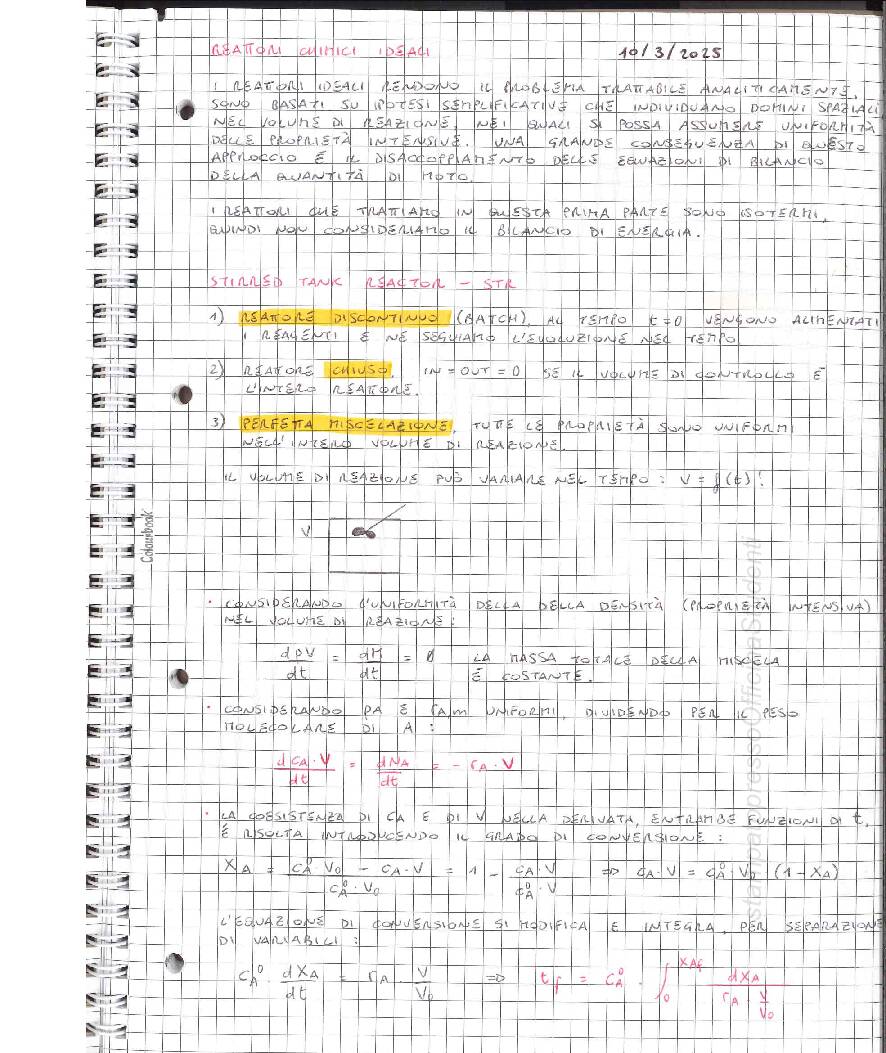 REATTORI CHIMICI IDEALI
10/3/2025
I REATTORI IDEALI RENDONO IL PROBLEMA TRATTABILE ANALITICAMENTE,
SONO BASATI SU IPOTESI SEMPLIFICATIVE CHE INDIVIDUANO DOMINI SPAZIALI
NEL VOLUME DI REAZIONE, NEI QUALI SI POSSA ASSUMERE UNIFORMITÀ
DELLE PROPRIETÀ INTENSIVE. UNA GRANDE CONSEGUENZA DI QUESTO
APPROCCIO È IL DISACCOPPIAMENTO DELLE EQUAZIONI DI BILANCIO
DELLA QUANTITÀ DI MOTO.
I REATTORI CHE TRATTIAMO IN QUESTA PRIMA PARTE SONO ISOTERMI,
QUINDI NON CONSIDERIAMO IL BILANCIO DI ENERGIA.
STIRRED TANK REACTOR - STR
1) REATTORE DISCONTINUO (BATCH), AL TEMPO t=0 VENGONO ALIMENTATI
I REAGENTI E NE SEGUIAMO L'EVOLUZIONE NEL TEMPO
2) REATTORE CHIUSO, IN=OUT=0 SE IL VOLUME DI CONTROLLO È
L'INTERO REATTORE.
3) PERFETTA MISCELAZIONE, TUTTE LE PROPRIETÀ SONO UNIFORMI
NELL'INTERO VOLUME DI REAZIONE.
IL VOLUME DI REAZIONE PUÒ VARIARE NEL TEMPO: V=f(t)!
V
Colourbook
stampatopressoOfficinaStudenti
• CONSIDERANDO L'UNIFORMITÀ DELLA DELLA DENSITÀ (PROPRIETÀ INTENSIVA)
NEL VOLUME DI REAZIONE:
dρV/dt = dM/dt = 0 LA MASSA TOTALE DELLA MISCELA
È COSTANTE.
• CONSIDERANDO ρA E rAm UNIFORMI, DIVIDENDO PER IL PESO
MOLECOLARE DI A:
dCA·V/dt = dNA/dt = -rA·V
• LA COESISTENZA DI CA E DI V NELLA DERIVATA, ENTRAMBE FUNZIONI DI t,
È RISOLTA INTRODUCENDO IL GRADO DI CONVERSIONE:
XA = (CA⁰ V₀ - CA·V)/(CA⁰·V₀) = 1 - (CA·V)/(CA⁰·V) => CA·V = CA⁰·V₀ (1-XA)
L'EQUAZIONE DI CONVERSIONE SI MODIFICA E INTEGRA, PER SEPARAZIONE
DI VARIABILI:
CA⁰·dXA/dt = rA V/V₀ => tf = CA⁰·∫₀^XAf dXA/(rA·V/V₀)